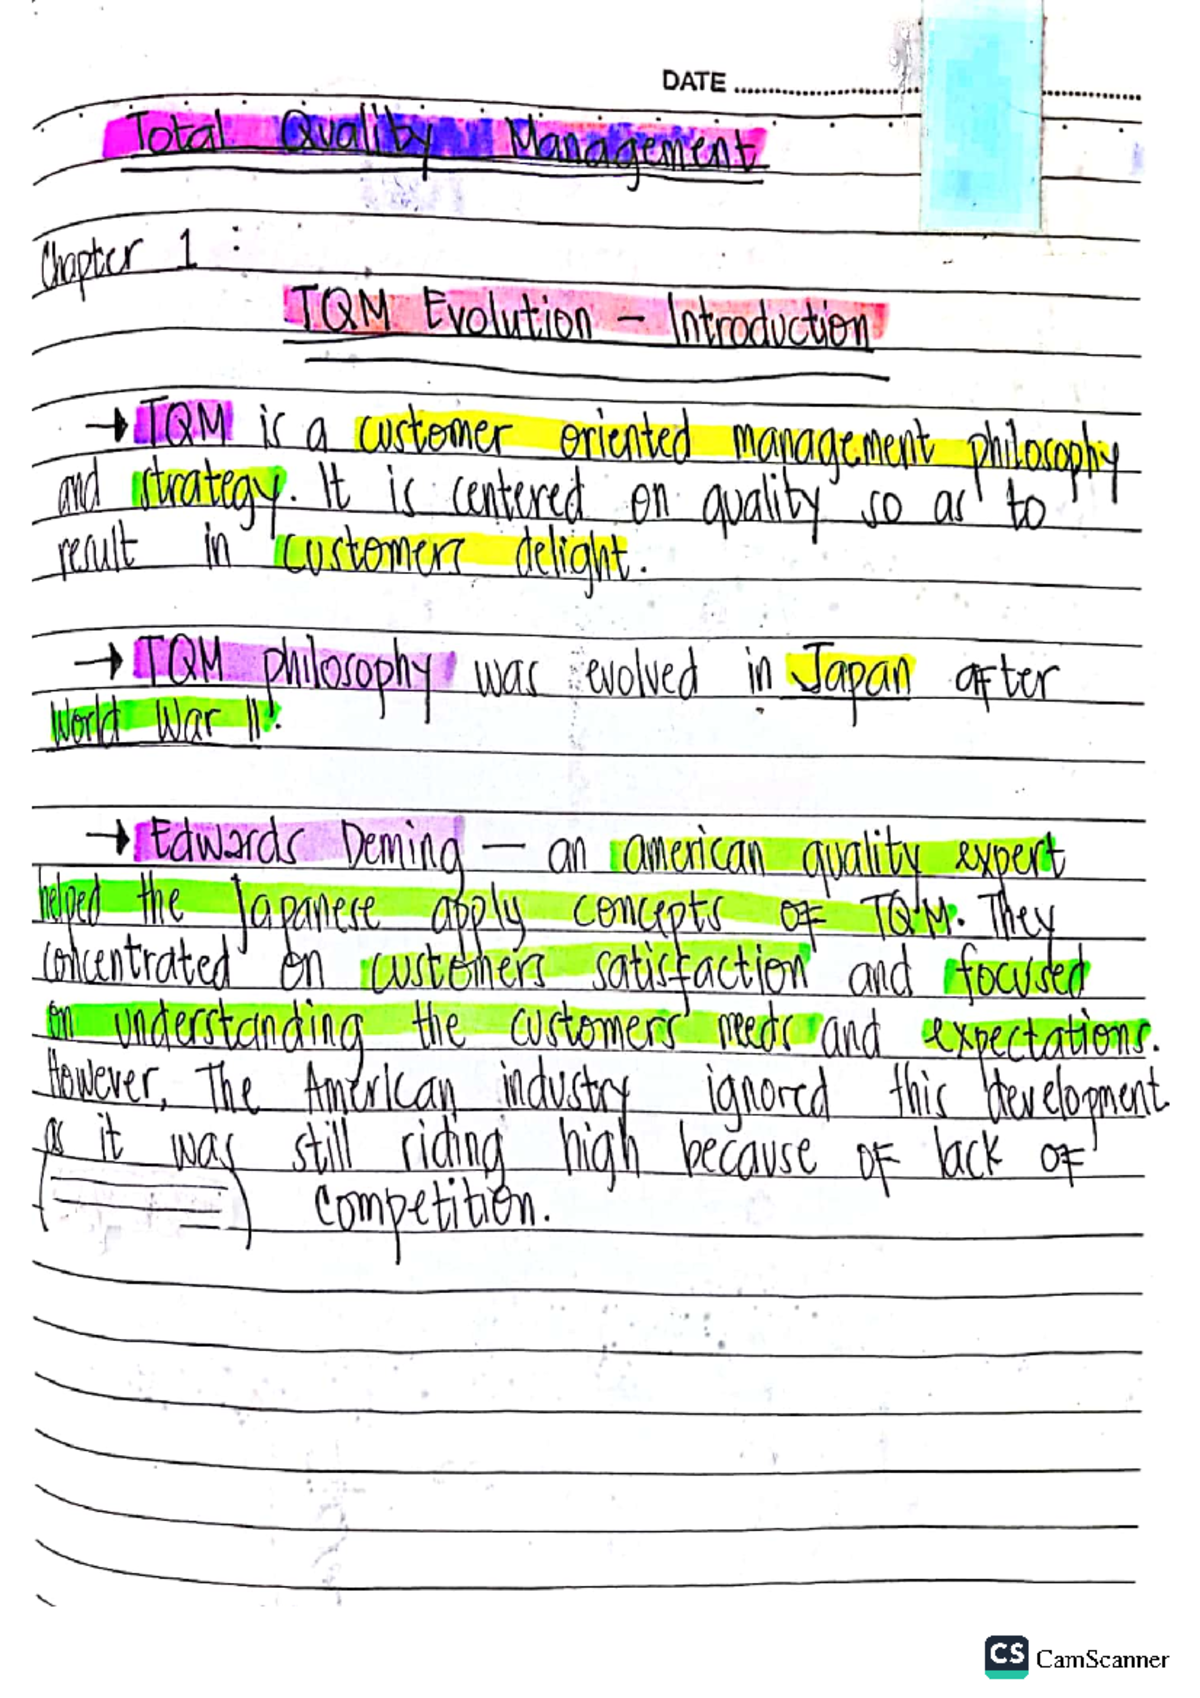 DATE
Total Quality Management
Chapter 1 :
TQM Evolution – Introduction
→ TQM is a customer oriented management philosophy
and strategy. It is centered on quality so as to
result in customers delight.
→ TQM philosophy was evolved in Japan after
World War II.
→ Edwards Deming – an american quality expert
helped the Japanese apply concepts of TQM. They
concentrated on customers satisfaction and focused
on understanding the customers needs and expectations.
However, The American industry ignored this development
as it was still riding high because of lack of
competition.
CS CamScanner